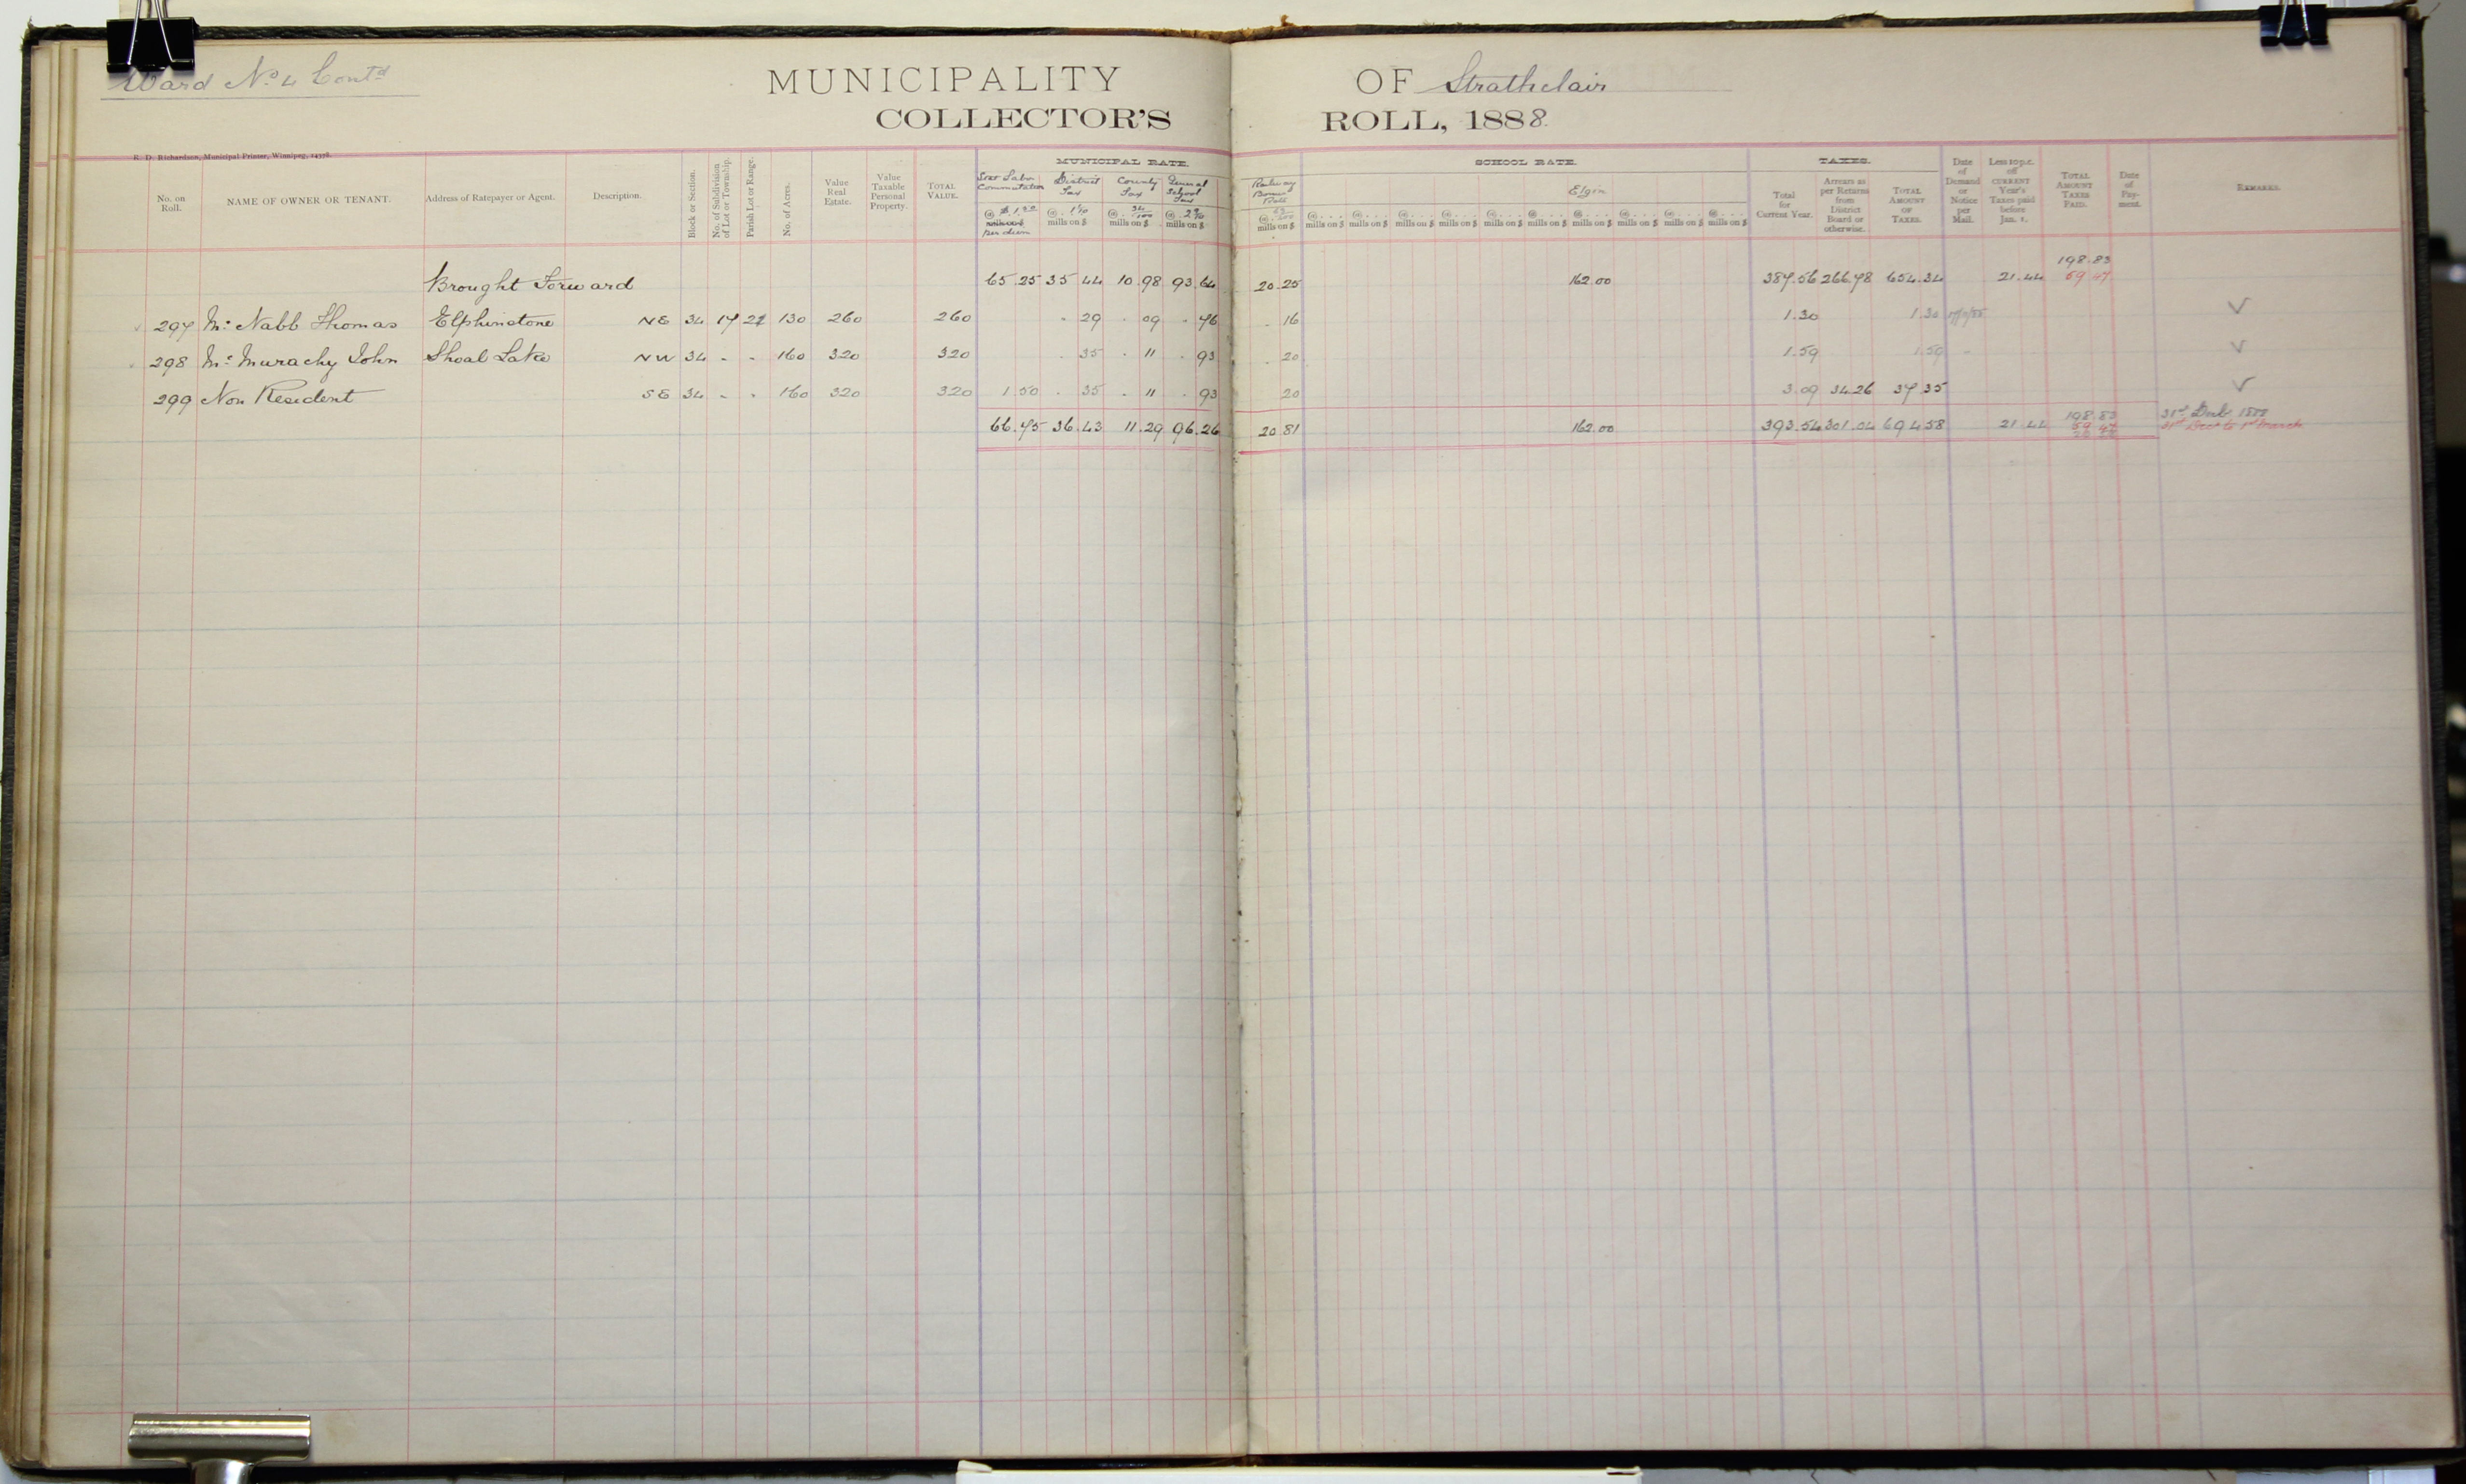 Ward No. 4 Contd
MUNICIPALITY OF Strathclair
COLLECTOR'S ROLL, 1888.
R. D. Richardson, Municipal Printer, Winnipeg, 14378.
MUNICIPAL RATE. SCHOOL RATE. TAXES.
No. on Roll. NAME OF OWNER OR TENANT. Address of Ratepayer or Agent. Description. Block or Section. No. of Subdivision of Lot or Township. Parish Lot or Range. No. of Acres. Value Real Estate. Value Taxable Personal Property. TOTAL VALUE. Labor Commutation @ $1.50 mills on $ per diem District Tax @ 1 1/10 mills on $ County Tax @ 34/100 mills on $ General School Tax @ 2 9/10 mills on $ Railway Bonus @ mills on $ @ mills on $ @ mills on $ @ mills on $ @ mills on $ @ mills on $ @ mills on $ Elgin @ mills on $ @ mills on $ @ mills on $ @ mills on $ Total for Current Year. Arrears as per Returns from District Board or otherwise. TOTAL AMOUNT OF TAXES. Date of Demand or Notice per Mail. Less 10 p.c. off CURRENT Year's Taxes paid before Jan. 1. TOTAL AMOUNT TAXES PAID. Date of Payment. REMARKS.
198.83
Brought Forward 65.25 35 44 10.98 93.64 20.25 162.00 387.56 266.78 654.34 21.44 59 47
297 Mc Nabb Thomas Elphinstone NE 34 17 21 130 260 260 . 29 . 09 . 76 . 16 1.30 1.30 V
298 Mc Murachy John Shoal Lake NW 34 - - 160 320 320 . 35 . 11 . 93 . 20 1.59 1.59 V
299 Non Resident SE 34 - - 160 320 320 1.50 . 35 . 11 . 93 20 3.09 34.26 37.35 V
198.83 31st Decb 1888
66.75 36.43 11.29 96.26 20.81 162.00 393.54 301.04 694.58 21.44 59 47 31st Dec to 1st March